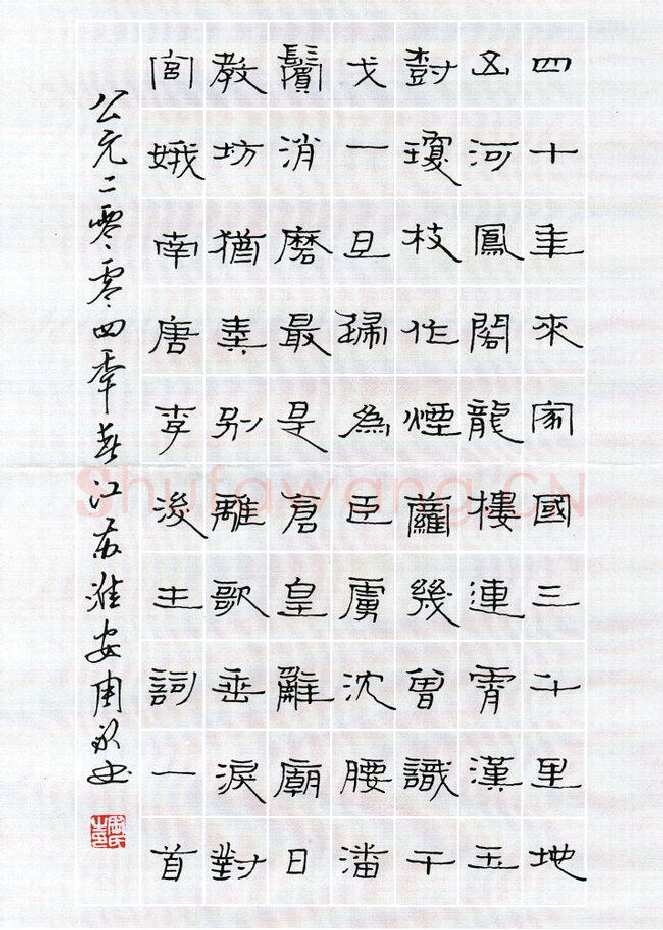 四十年來家國三千里地
山河鳳閣龍樓連霄漢玉
樹瓊枝作煙蘿幾曾識干
戈一旦歸為臣虜沈腰潘
鬢消磨最是倉皇辭廟日
教坊猶奏別離歌垂淚對
宮娥南唐李後主詞一首
公元二零零四年春江苏淮安周书
Shufawang.CN